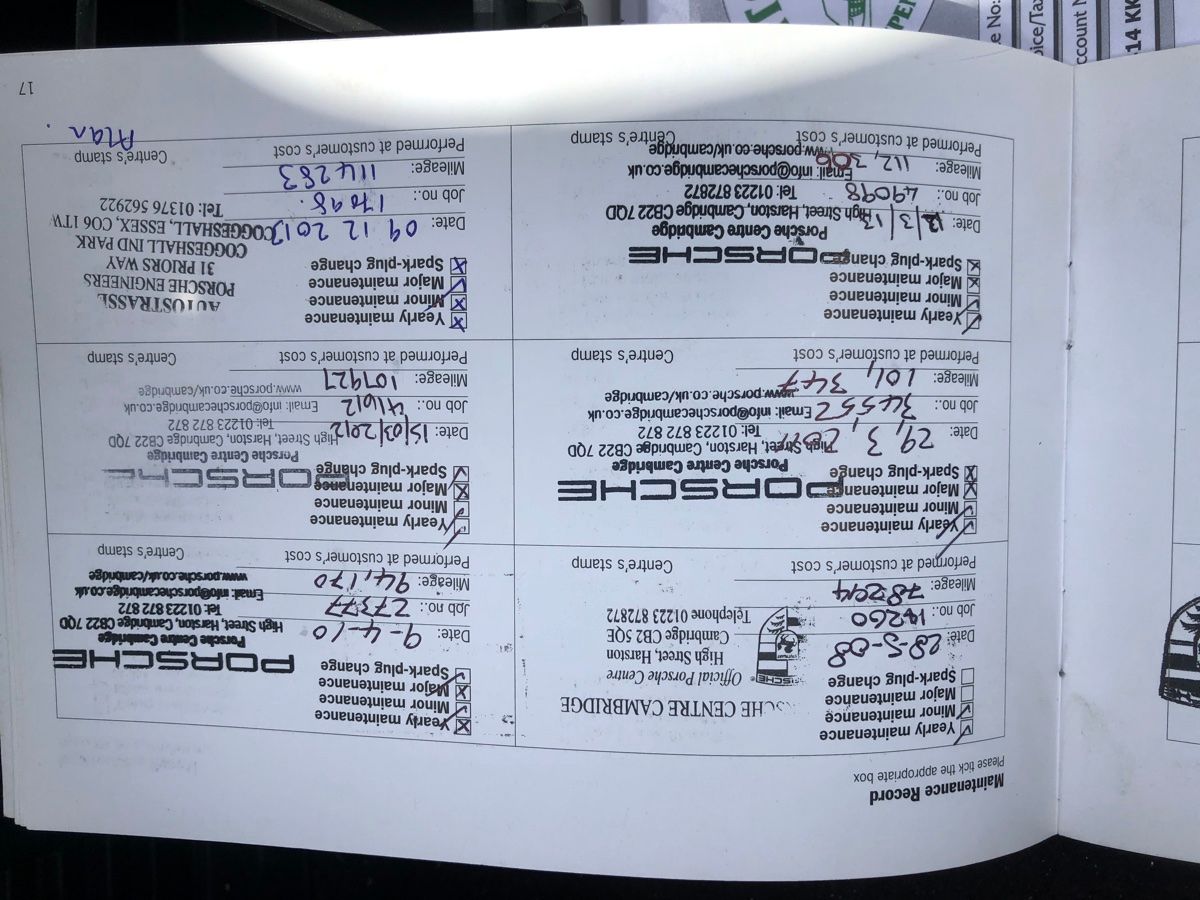 Maintenance Record
Please tick the appropriate box
Yearly maintenance
Minor maintenance
Major maintenance
Spark-plug change
Date: 28-5-08
Job no.: 14260
Mileage: 78294
Performed at customer's cost
Centre's stamp
CENTRE CAMBRIDGE
Official Porsche Centre
High Street, Harston
Cambridge CB2 5QE
Telephone 01223 872872
Yearly maintenance
Minor maintenance
Major maintenance
Spark-plug change
Date: 9-4-10
Job no.: 27377
Mileage: 94,170
Performed at customer's cost
Centre's stamp
PORSCHE
Porsche Centre Cambridge
High Street, Harston, Cambridge CB22 7QD
Tel: 01223 872 872
Email: info@porschecambridge.co.uk
www.porsche.co.uk/cambridge
Yearly maintenance
Minor maintenance
Major maintenance
Spark-plug change
Date: 29, 3, 2011
Job no.: 34552
Mileage: 101, 347
Performed at customer's cost
Centre's stamp
PORSCHE
Porsche Centre Cambridge
High Street, Harston, Cambridge CB22 7QD
Tel: 01223 872 872
Email: info@porschecambridge.co.uk
www.porsche.co.uk/cambridge
Yearly maintenance
Minor maintenance
Major maintenance
Spark-plug change
Date: 15/03/2012
Job no.: 41612
Mileage: 107927
Performed at customer's cost
Centre's stamp
PORSCHE
Porsche Centre Cambridge
High Street, Harston, Cambridge CB22 7QD
Tel: 01223 872 872
Email: info@porschecambridge.co.uk
www.porsche.co.uk/cambridge
Yearly maintenance
Minor maintenance
Major maintenance
Spark-plug change
Date: 13/3/13
Job no.: 49098
Mileage: 112, 300
Performed at customer's cost
Centre's stamp
PORSCHE
Porsche Centre Cambridge
High Street, Harston, Cambridge CB22 7QD
Tel: 01223 872872
Email: info@porschecambridge.co.uk
www.porsche.co.uk/cambridge
Yearly maintenance
Minor maintenance
Major maintenance
Spark-plug change
Date: 09 12 2013
Job no.: 17098.
Mileage: 114283
Performed at customer's cost
Centre's stamp
AUTOSTRASSE
PORSCHE ENGINEERS
31 PRIORS WAY
COGGESHALL IND PARK
COGGESHALL, ESSEX, CO6 1TW
Tel: 01376 562922
Alan
17